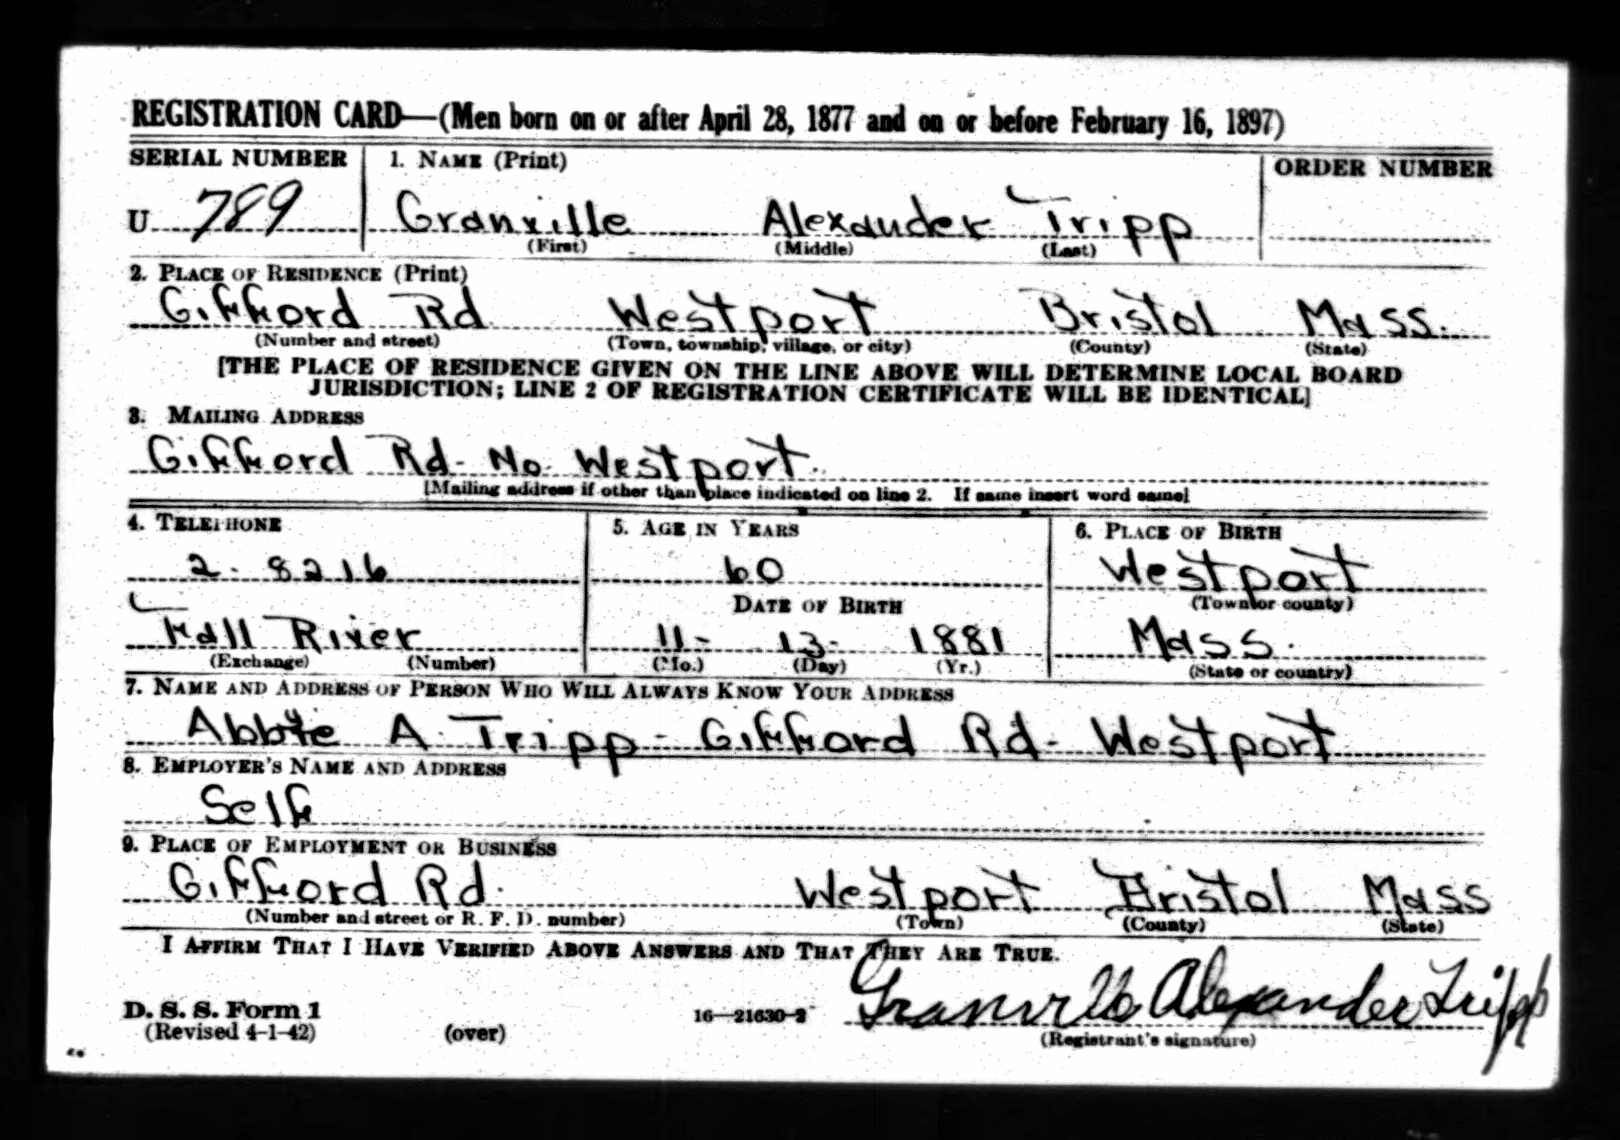 REGISTRATION CARD—(Men born on or after April 28, 1877 and on or before February 16, 1897)
SERIAL NUMBER 1. NAME (Print) ORDER NUMBER
U 789 Granville Alexander Tripp
(First) (Middle) (Last)
2. PLACE OF RESIDENCE (Print)
Gifford Rd Westport Bristol Mass.
(Number and street) (Town, township, village, or city) (County) (State)
[THE PLACE OF RESIDENCE GIVEN ON THE LINE ABOVE WILL DETERMINE LOCAL BOARD
JURISDICTION; LINE 2 OF REGISTRATION CERTIFICATE WILL BE IDENTICAL]
3. MAILING ADDRESS
Gifford Rd- No. Westport.
[Mailing address if other than place indicated on line 2. If same insert word same]
4. TELEPHONE 5. AGE IN YEARS 6. PLACE OF BIRTH
2-8216 60 Westport
DATE OF BIRTH (Town or county)
Fall River 11- 13- 1881 Mass.
(Exchange) (Number) (Mo.) (Day) (Yr.) (State or country)
7. NAME AND ADDRESS OF PERSON WHO WILL ALWAYS KNOW YOUR ADDRESS
Abbie A. Tripp - Gifford Rd- Westport
8. EMPLOYER'S NAME AND ADDRESS
Self
9. PLACE OF EMPLOYMENT OR BUSINESS
Gifford Rd. Westport Bristol Mass
(Number and street or R. F. D. number) (Town) (County) (State)
I AFFIRM THAT I HAVE VERIFIED ABOVE ANSWERS AND THAT THEY ARE TRUE.
D. S. S. Form 1
(Revised 4-1-42) (over) 16—21630-2 Granville Alexander Tripp
(Registrant's signature)